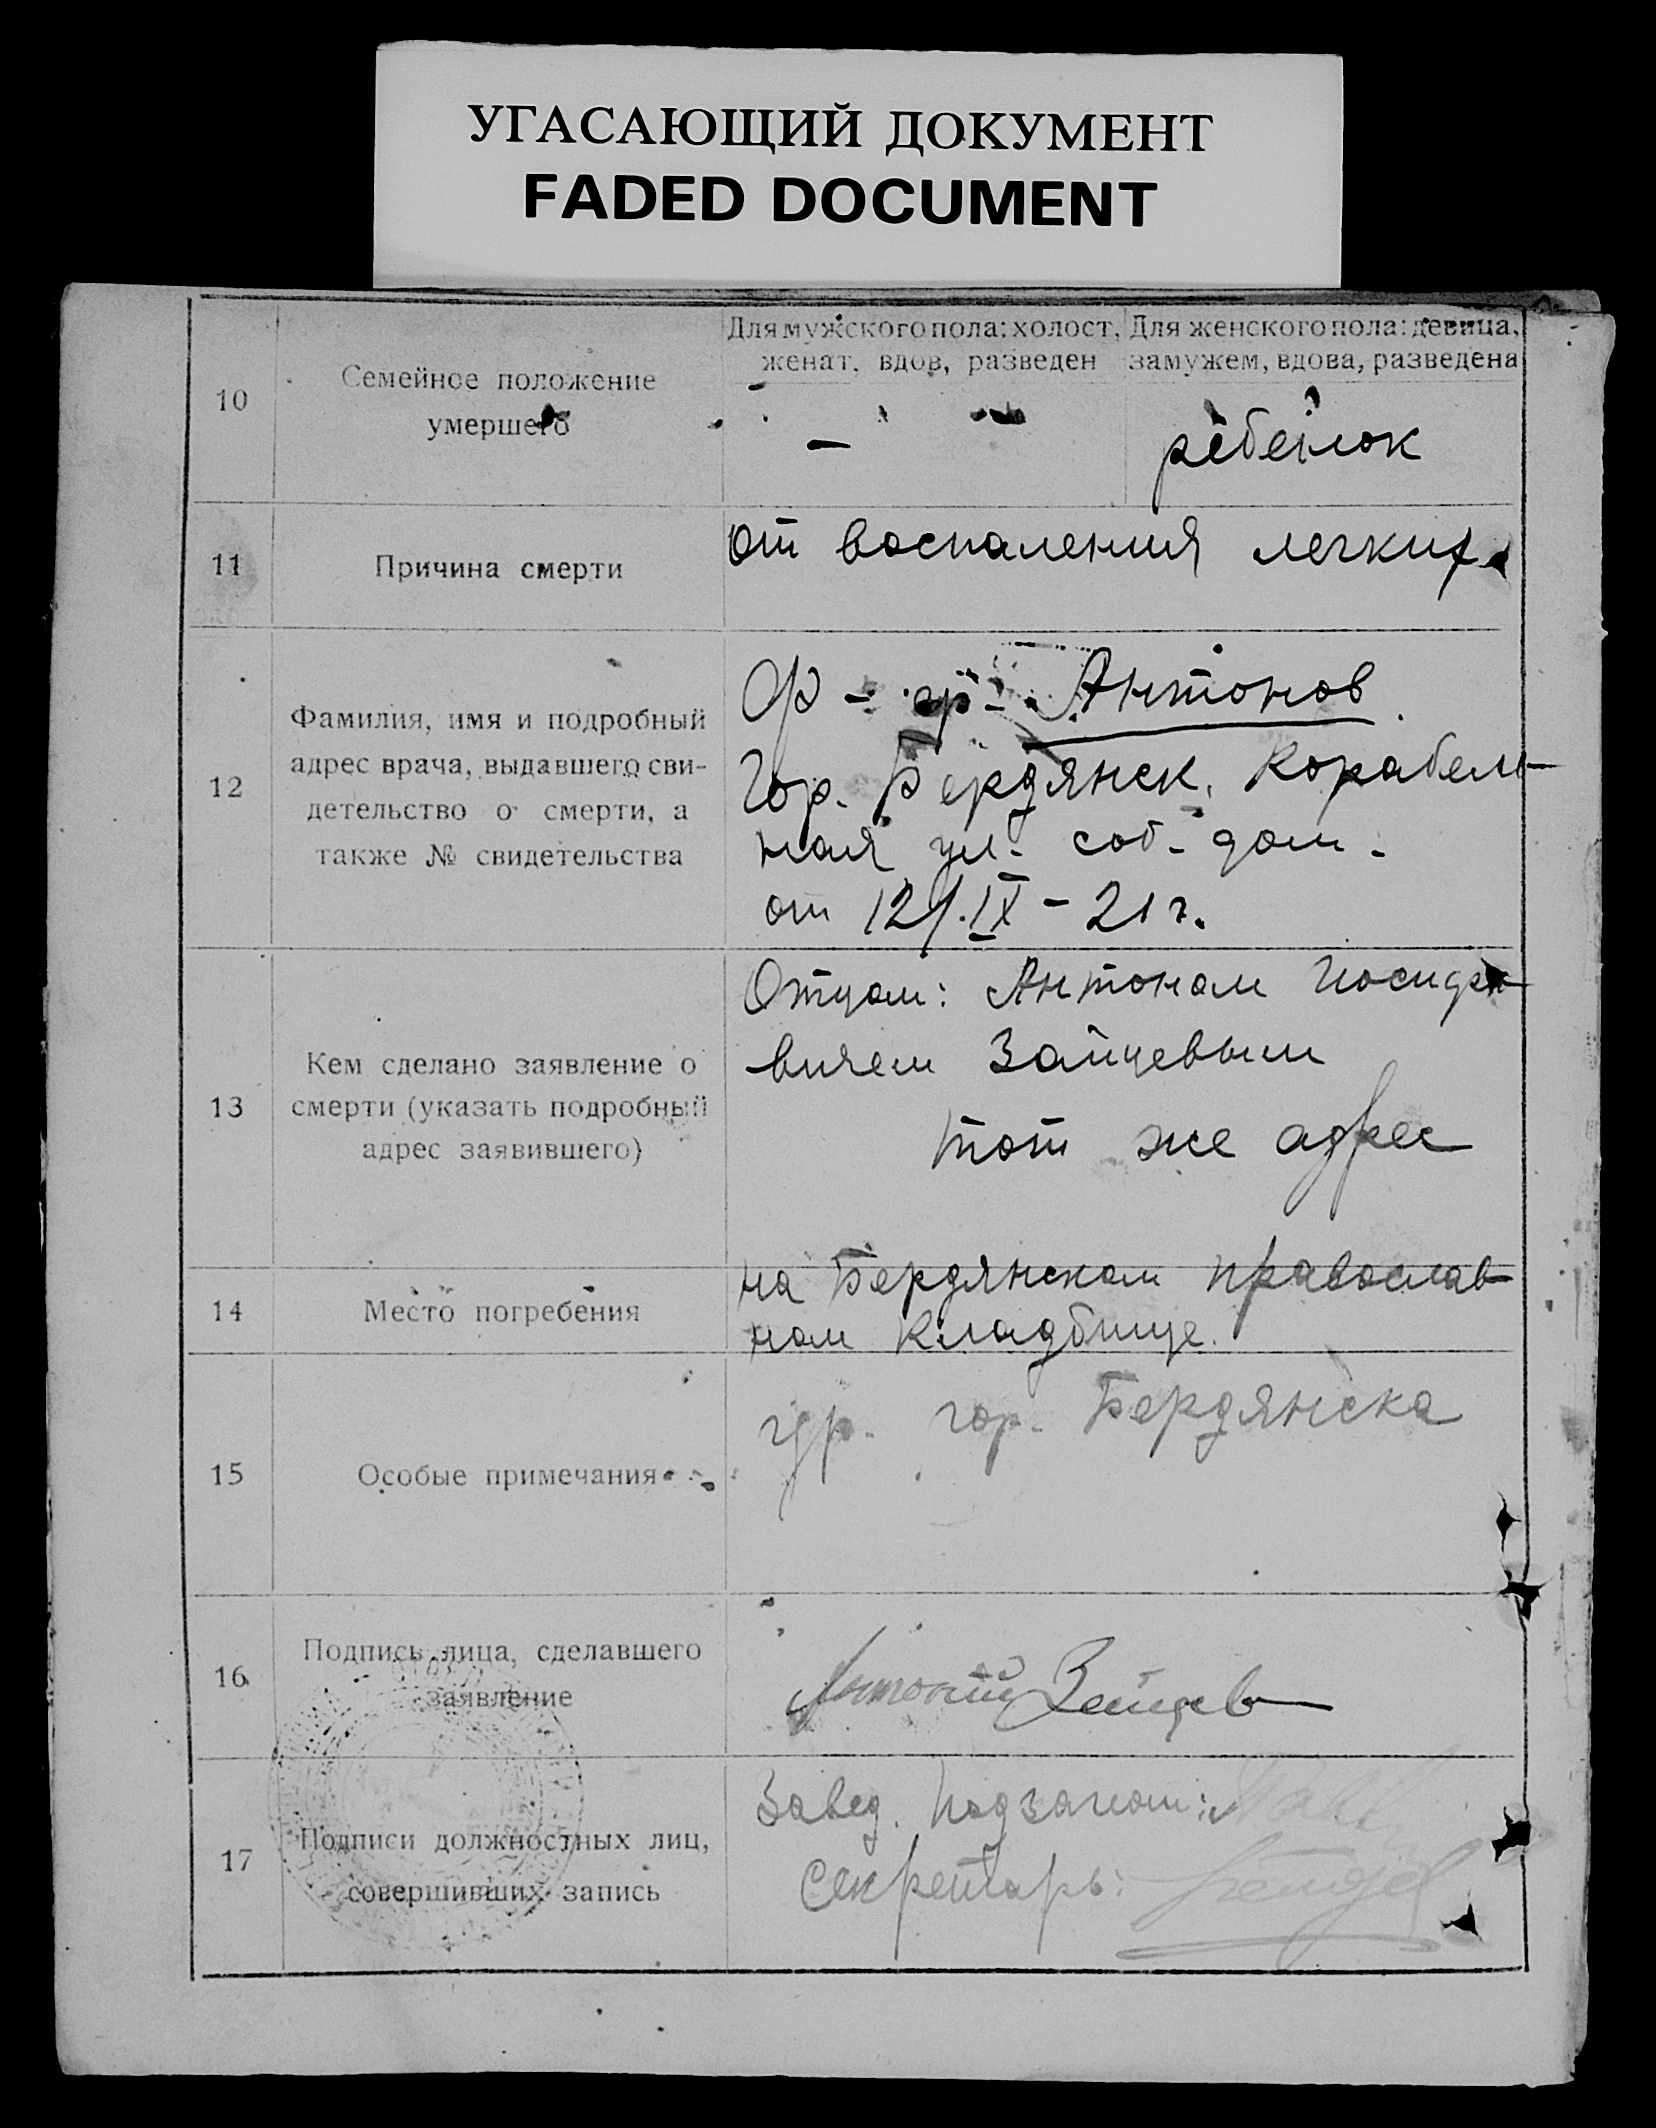 УГАСАЮЩИЙ ДОКУМЕНТ
FADED DOCUMENT
10
Семейное положение
умершего
Для мужского пола: холост,
женат, вдов, разведен
—
Для женского пола: девица,
замужем, вдова, разведена
ребенок
11
Причина смерти
от воспаления легких
12
Фамилия, имя и подробный
адрес врача, выдавшего сви-
детельство о смерти, а
также № свидетельства
Антонов
Гор. Бердянск. Корабель-
ная ул. соб. дом.
от 12/IX - 21 г.
13
Кем сделано заявление о
смерти (указать подробный
адрес заявившего)
Отцом: Антоном
вичем Зайцевым
тот же адрес
14
Место погребения
на Бердянском православ-
ном кладбище.
15
Особые примечания
гр. гор. Бердянска
16
Подпись лица, сделавшего
заявление
Антоний Зайцев
17
Подписи должностных лиц,
совершивших запись
Завед. Подзагсом:
Секретарь: